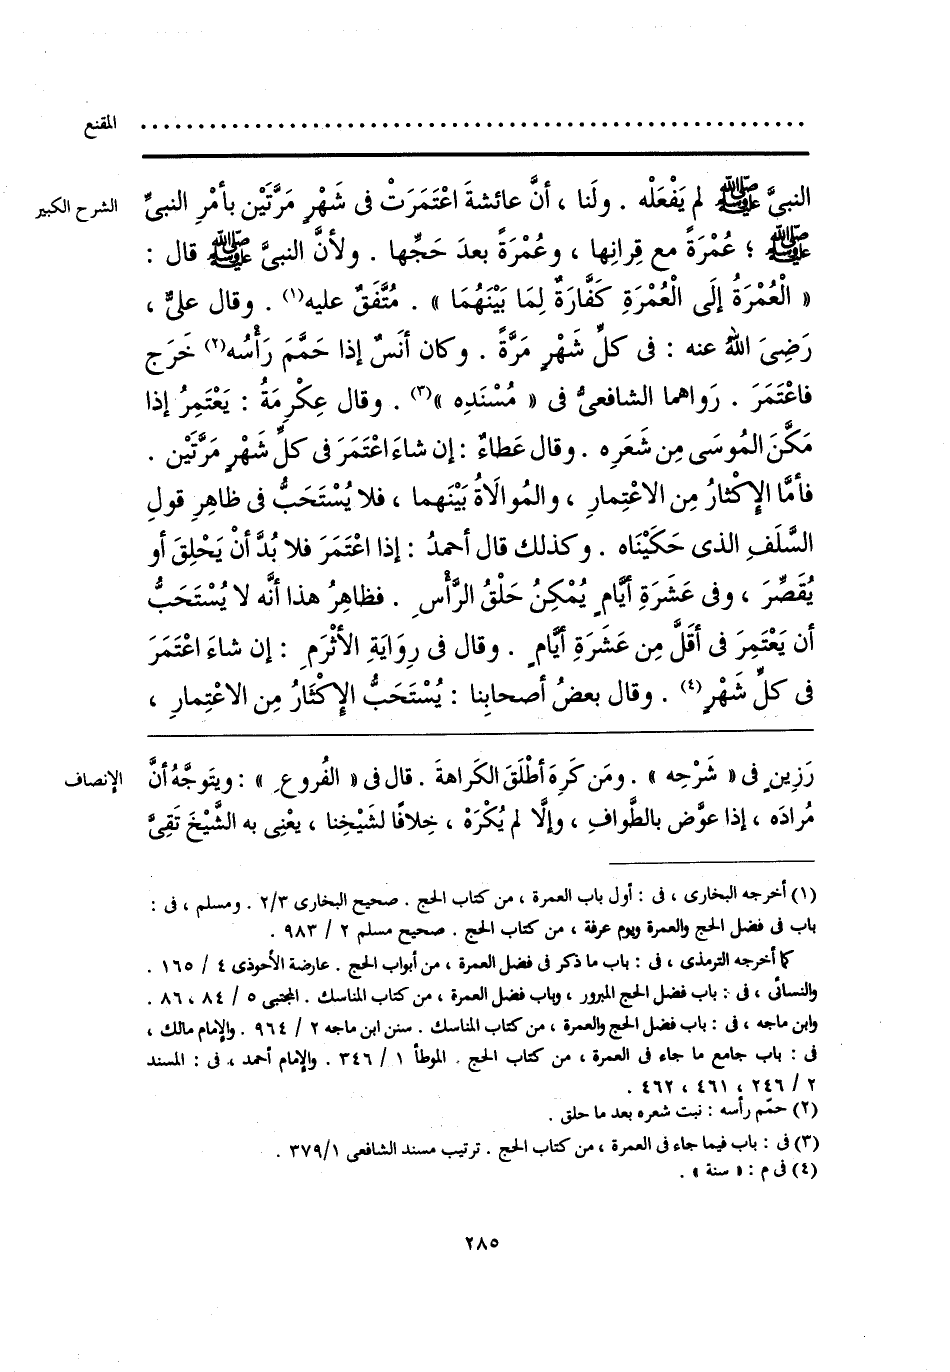 المقنع ........................................................
الشرح الكبير
النبىَّ ﷺ لم يَفْعَلْه . ولَنا ، أنَّ عائشةَ اعْتَمَرَتْ فى شَهْرٍ مَرَّتَيْن بأمْرِ النبىِّ
ﷺ ؛ عُمْرَةً مع قِرانِها ، وعُمْرَةً بعدَ حَجِّها . ولأنَّ النبىَّ ﷺ قال :
« الْعُمْرَةُ إلَى الْعُمْرَةِ كَفَّارَةٌ لِمَا بَيْنَهُمَا » . مُتَّفَقٌ عليه(١) . وقال علىٌّ ،
رَضِىَ اللهُ عنه : فى كلِّ شَهْرٍ مَرَّةً . وكان أنَسٌ إذا حَمَّمَ رَأْسُه(٢) خَرَج
فاعْتَمَرَ . رَواهما الشافعىُّ فى « مُسْنَدِه »(٣) . وقال عِكْرِمَةُ : يَعْتَمِرُ إذا
مَكَّنَ المُوسَى مِن شَعَرِه . وقال عَطاءٌ : إن شاءَ اعْتَمَرَ فى كلِّ شَهْرٍ مَرَّتَيْن .
فأمَّا الإِكْثارُ مِن الاعْتِمارِ ، والمُوالَاةُ بَيْنَهما ، فلا يُسْتَحَبُّ فى ظاهِرِ قولِ
السَّلَفِ الذى حَكَيْنَاه . وكذلك قال أحمدُ : إذا اعْتَمَرَ فلا بُدَّ أنْ يَحْلِقَ أو
يُقَصِّرَ ، وفى عَشَرَةِ أيَّامٍ يُمْكِنُ حَلْقُ الرَّأْسِ . فظاهِرُ هذا أنَّه لا يُسْتَحَبُّ
أن يَعْتَمِرَ فى أقَلَّ مِن عَشَرَةِ أيَّامٍ . وقال فى رِوَايَةِ الأثْرَمِ : إن شاءَ اعْتَمَرَ
فى كلِّ شَهْرٍ(٤) . وقال بعضُ أصحابِنا : يُسْتَحَبُّ الإِكْثَارُ مِن الاعْتِمارِ ،
الإنصاف
رَزِينٍ فى « شَرْحِه » . ومَن كَرِهَ أطْلَقَ الكَراهةَ . قال فى « الفُروعِ » : ويتَوجَّهُ أنَّ
مُرادَه ، إذا عوَّض بالطَّوافِ ، وإلَّا لم يُكْرَهْ ، خِلافًا لشَيْخِنا ، يعْنِى به الشَّيْخَ تَقِىَّ
(١) أخرجه البخارى ، فى : أول باب العمرة ، من كتاب الحج . صحيح البخارى ٢/٣ . ومسلم ، فى :
باب فى فضل الحج والعمرة ويوم عرفة ، من كتاب الحج . صحيح مسلم ٢ / ٩٨٣ .
كما أخرجه الترمذى ، فى : باب ما ذكر فى فضل العمرة ، من أبواب الحج . عارضة الأحوذى ٤ / ١٦٥ .
والنسائى ، فى : باب فضل الحج المبرور ، وباب فضل العمرة ، من كتاب المناسك . المجتبى ٥ / ٨٤ ، ٨٦ .
وابن ماجه ، فى : باب فضل الحج والعمرة ، من كتاب المناسك . سنن ابن ماجه ٢ / ٩٦٤ . والإمام مالك ،
فى : باب جامع ما جاء فى العمرة ، من كتاب الحج . الموطأ ١ / ٣٤٦ . والإمام أحمد ، فى : المسند
٢ / ٢٤٦ ، ٤٦١ ، ٤٦٢ .
(٢) حمّم رأسه : نبت شعره بعد ما حلق .
(٣) فى : باب فيما جاء فى العمرة ، من كتاب الحج . ترتيب مسند الشافعى ٣٧٩/١ .
(٤) فى م : « سنة » .
٢٨٥